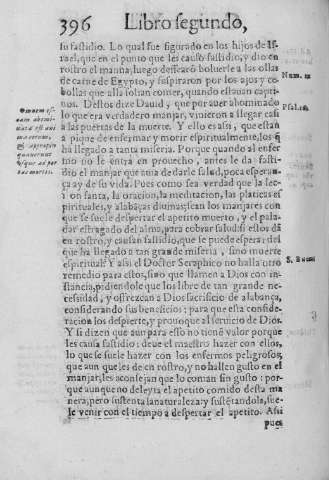 396 Libro segundo,
su fastidio. Lo qual fue figurado en los hijos de Is-
rael, que en el punto que les causò fastidio, y dio en
rostro el manna, luego dessearõ boluerse a las ollas
de carne de Egypto, y suspiraron por los ajos y ce-
bollas que alla solian comer, quando estauan capti-
uos. Destos dize Dauid, que por auer abominado
lo que era verdadero manjar, vinieron a llegar casi
a las puertas de la muerte. Y ello es assi, que estan
a pique de enfermar y morir espiritualmente, los q̃
hã llegado a tanta miseria. Porque quando al enfer
mo no le entra en prouecho, antes le da fasti-
dio el manjar que auia de darle salud, poca esperan-
ça ay de su vida. Pues como sea verdad que la lec-
ion santa, la oracion, la meditacion, las platicas es-
pirituales, y alabãças diuinas, sean los manjares con
que se suele despertar el apetito muerto, y el pala-
dar estragado del alma, para cobrar salud: si estos dã
en rostro, y causan fastidio, que se puede esperar del
que ha llegado a tan grande miseria, sino muerte
espiritual? Y assi el Doctor Seraphico no halla otro
remedio para estos, sino que llamen a Dios con in-
stancia, pidiendole que los libre de tan grande ne-
cessidad, y offrezcan a Dios sacrificio de alabança,
considerando sus beneficios: para que esta conside-
racion los despierte, y prouoque al seruicio de Dios.
Y si dizen que aun para esto no tienẽ valor porque
les causa fastidio: deue el maestro hazer con ellos,
lo que se suele hazer con los enfermos peligrosos,
que aun que les de en rostro, y no hallen gusto en el
manjar, les aconsejan que lo coman sin gusto: por-
que aunque no deleyta el apetito comido desta ma
nera, pero sustenta la naturaleza: y sustẽtandola, sue-
le venir con el tiempo a despertar el apetito. Assi
pues
Num. 11
Psal.
S. Buena
Omnem es-
cam abomi-
nata est ani
ma eorum:
& appropin
quauerunt
vsque ad por
tas mortis.